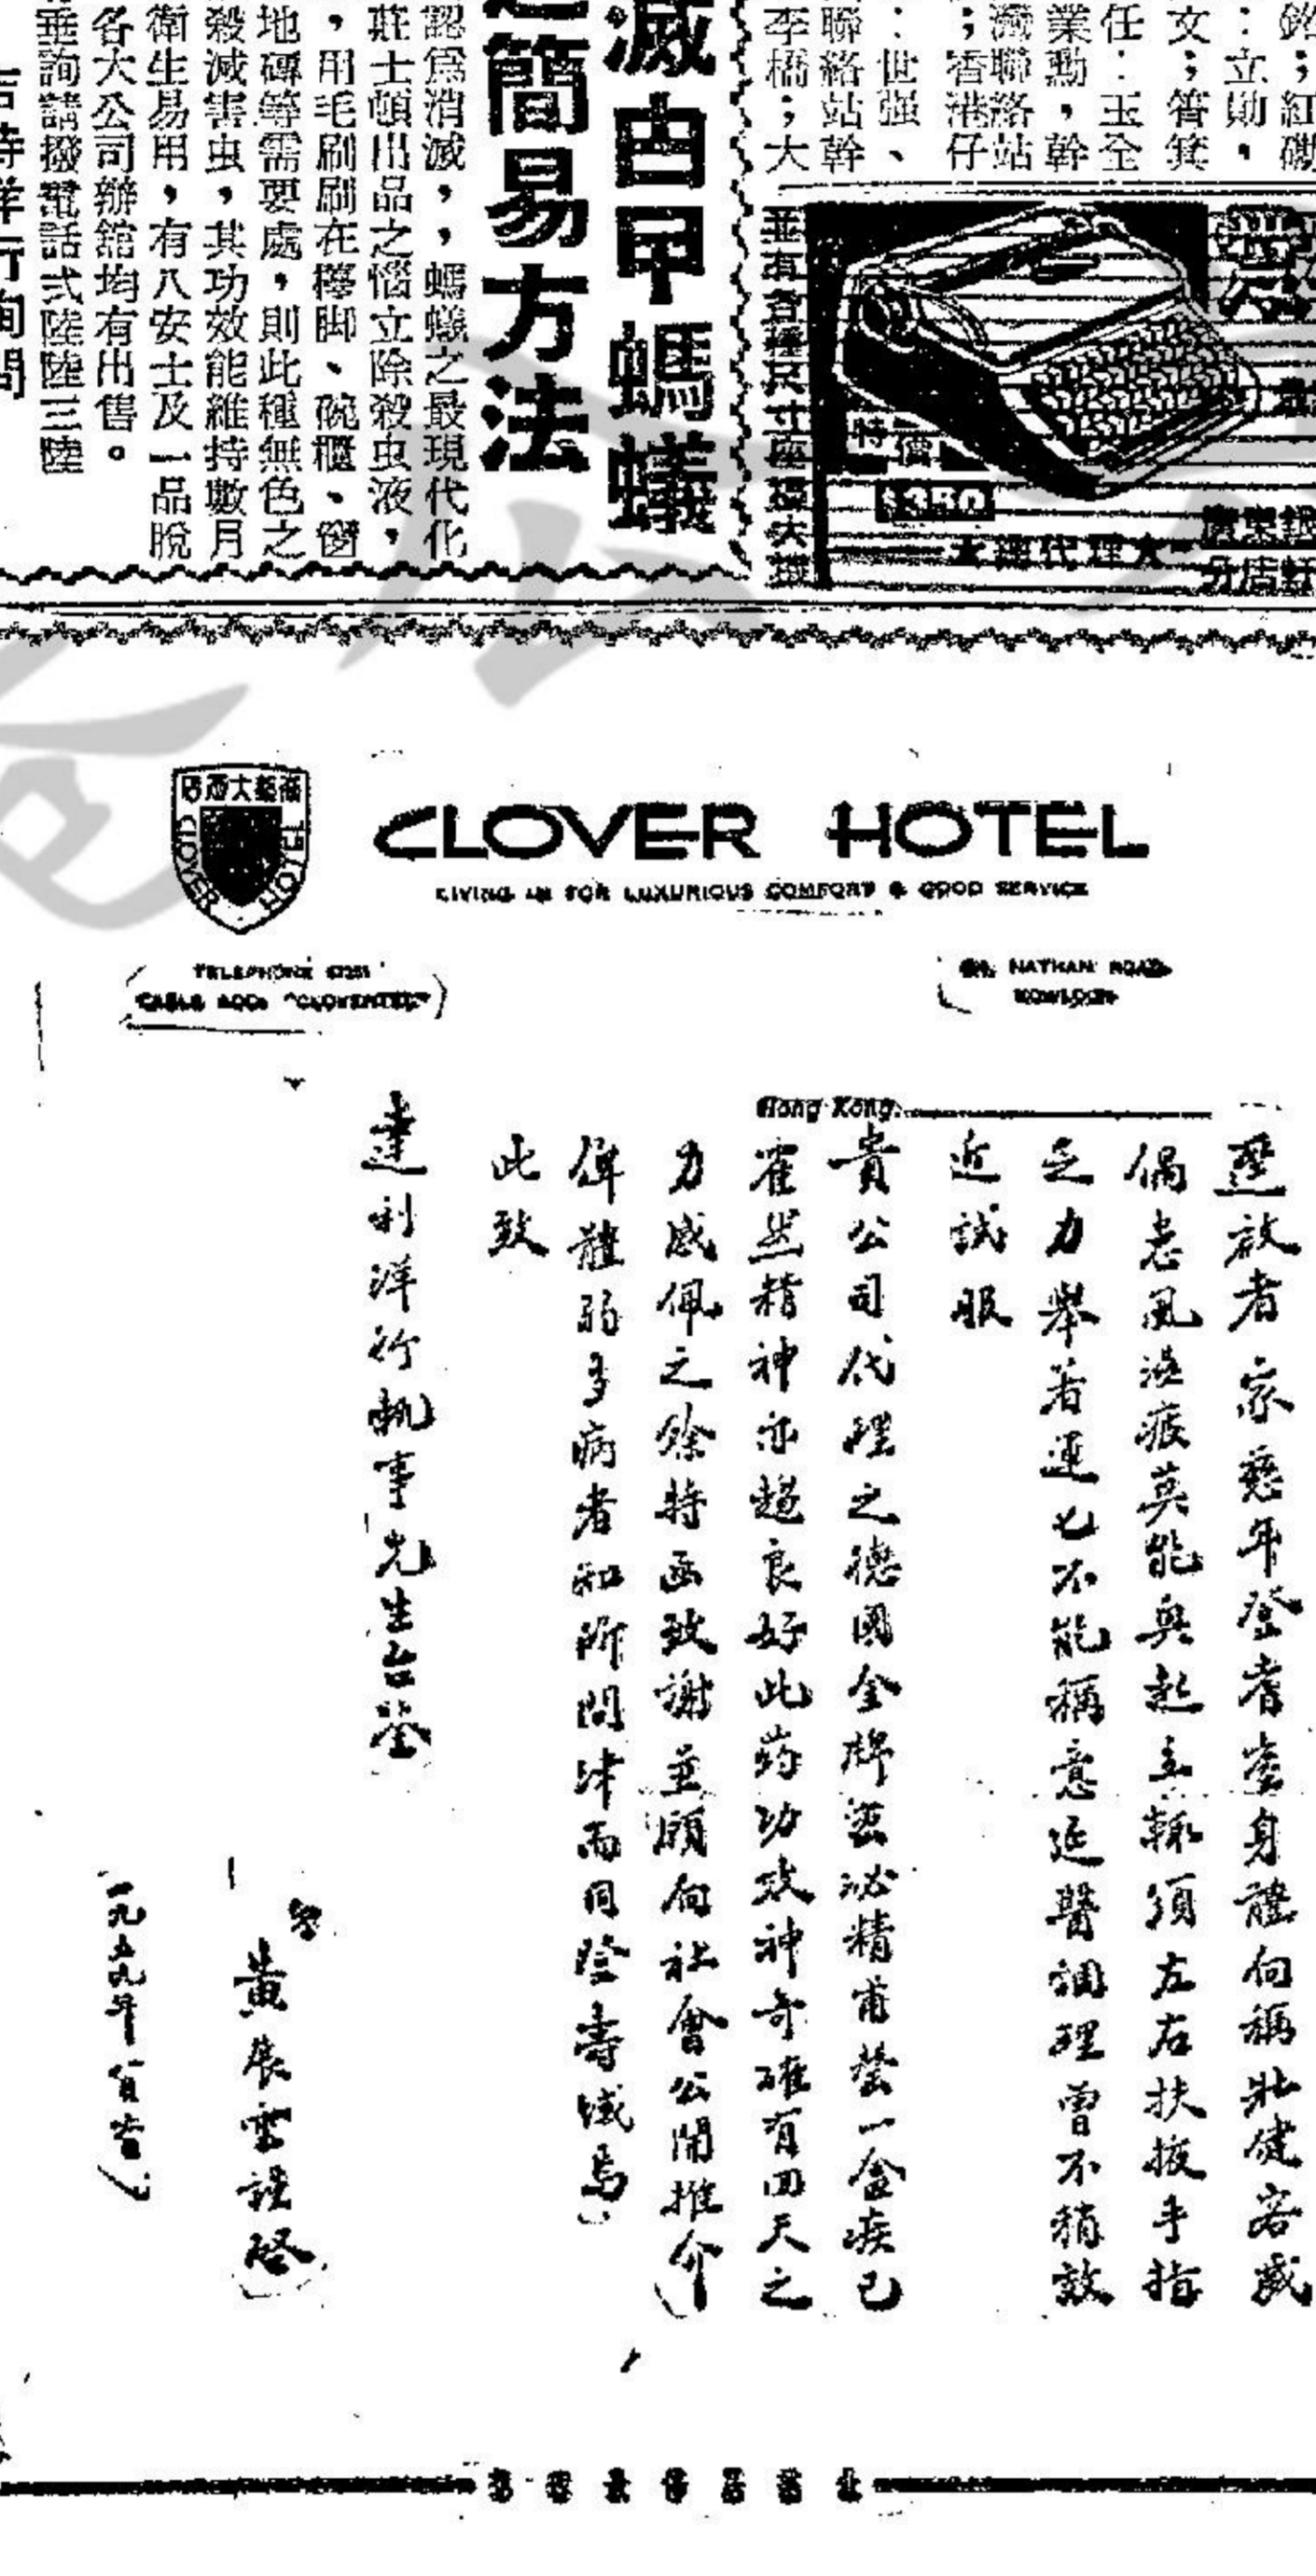 銘;紅磡
:立勛,
文;筲箕
任:玉全
業勳,幹
灣聯絡站
;香港仔
:世强、
聯絡站幹
李橋;大
特價
$350
大理代總大
並有各種尺寸座檯大機
滅曱甴螞蟻
之簡易方法
認爲消滅,,螞蟻之最現代化
莊士頓出品之惱立除殺虫液,
,用毛刷刷在檯脚、碗櫃、窗
地磚等需要處,則此種無色之
殺滅害虫,其功效能維持數月
衛生易用,有八安士及一品脫
各大公司辦舘均有出售。
垂詢請撥電話式陸陸三陸
洋行詢問
CLOVER HOTEL
CLOVER HOTEL
LIVING IN FOR LUXURIOUS COMFORT & GOOD SERVICE
TELEPHONE
CABLE ADD: "CLOVERTEL"
NATHAN ROAD,
KOWLOON
Hong Kong,
逕啟者 家慈年登耆耋身體向稱壯健客歲
偶患風濕疲莫能興起立輒須左右扶掖手指
乏力舉箸運匕不能稱意延醫調理曾不稍效
近試服
貴公司代理之德國金牌滋泌精甫罄一盒疾已
霍然精神亦趨良好此药功效神奇確有回天之
力感佩之餘特函致謝並願向社會公開推介
俾體弱多病者知所問津而同陞壽域焉
此致
達利洋行執事先生台鑒
黃展雲謹啓
一九五九年